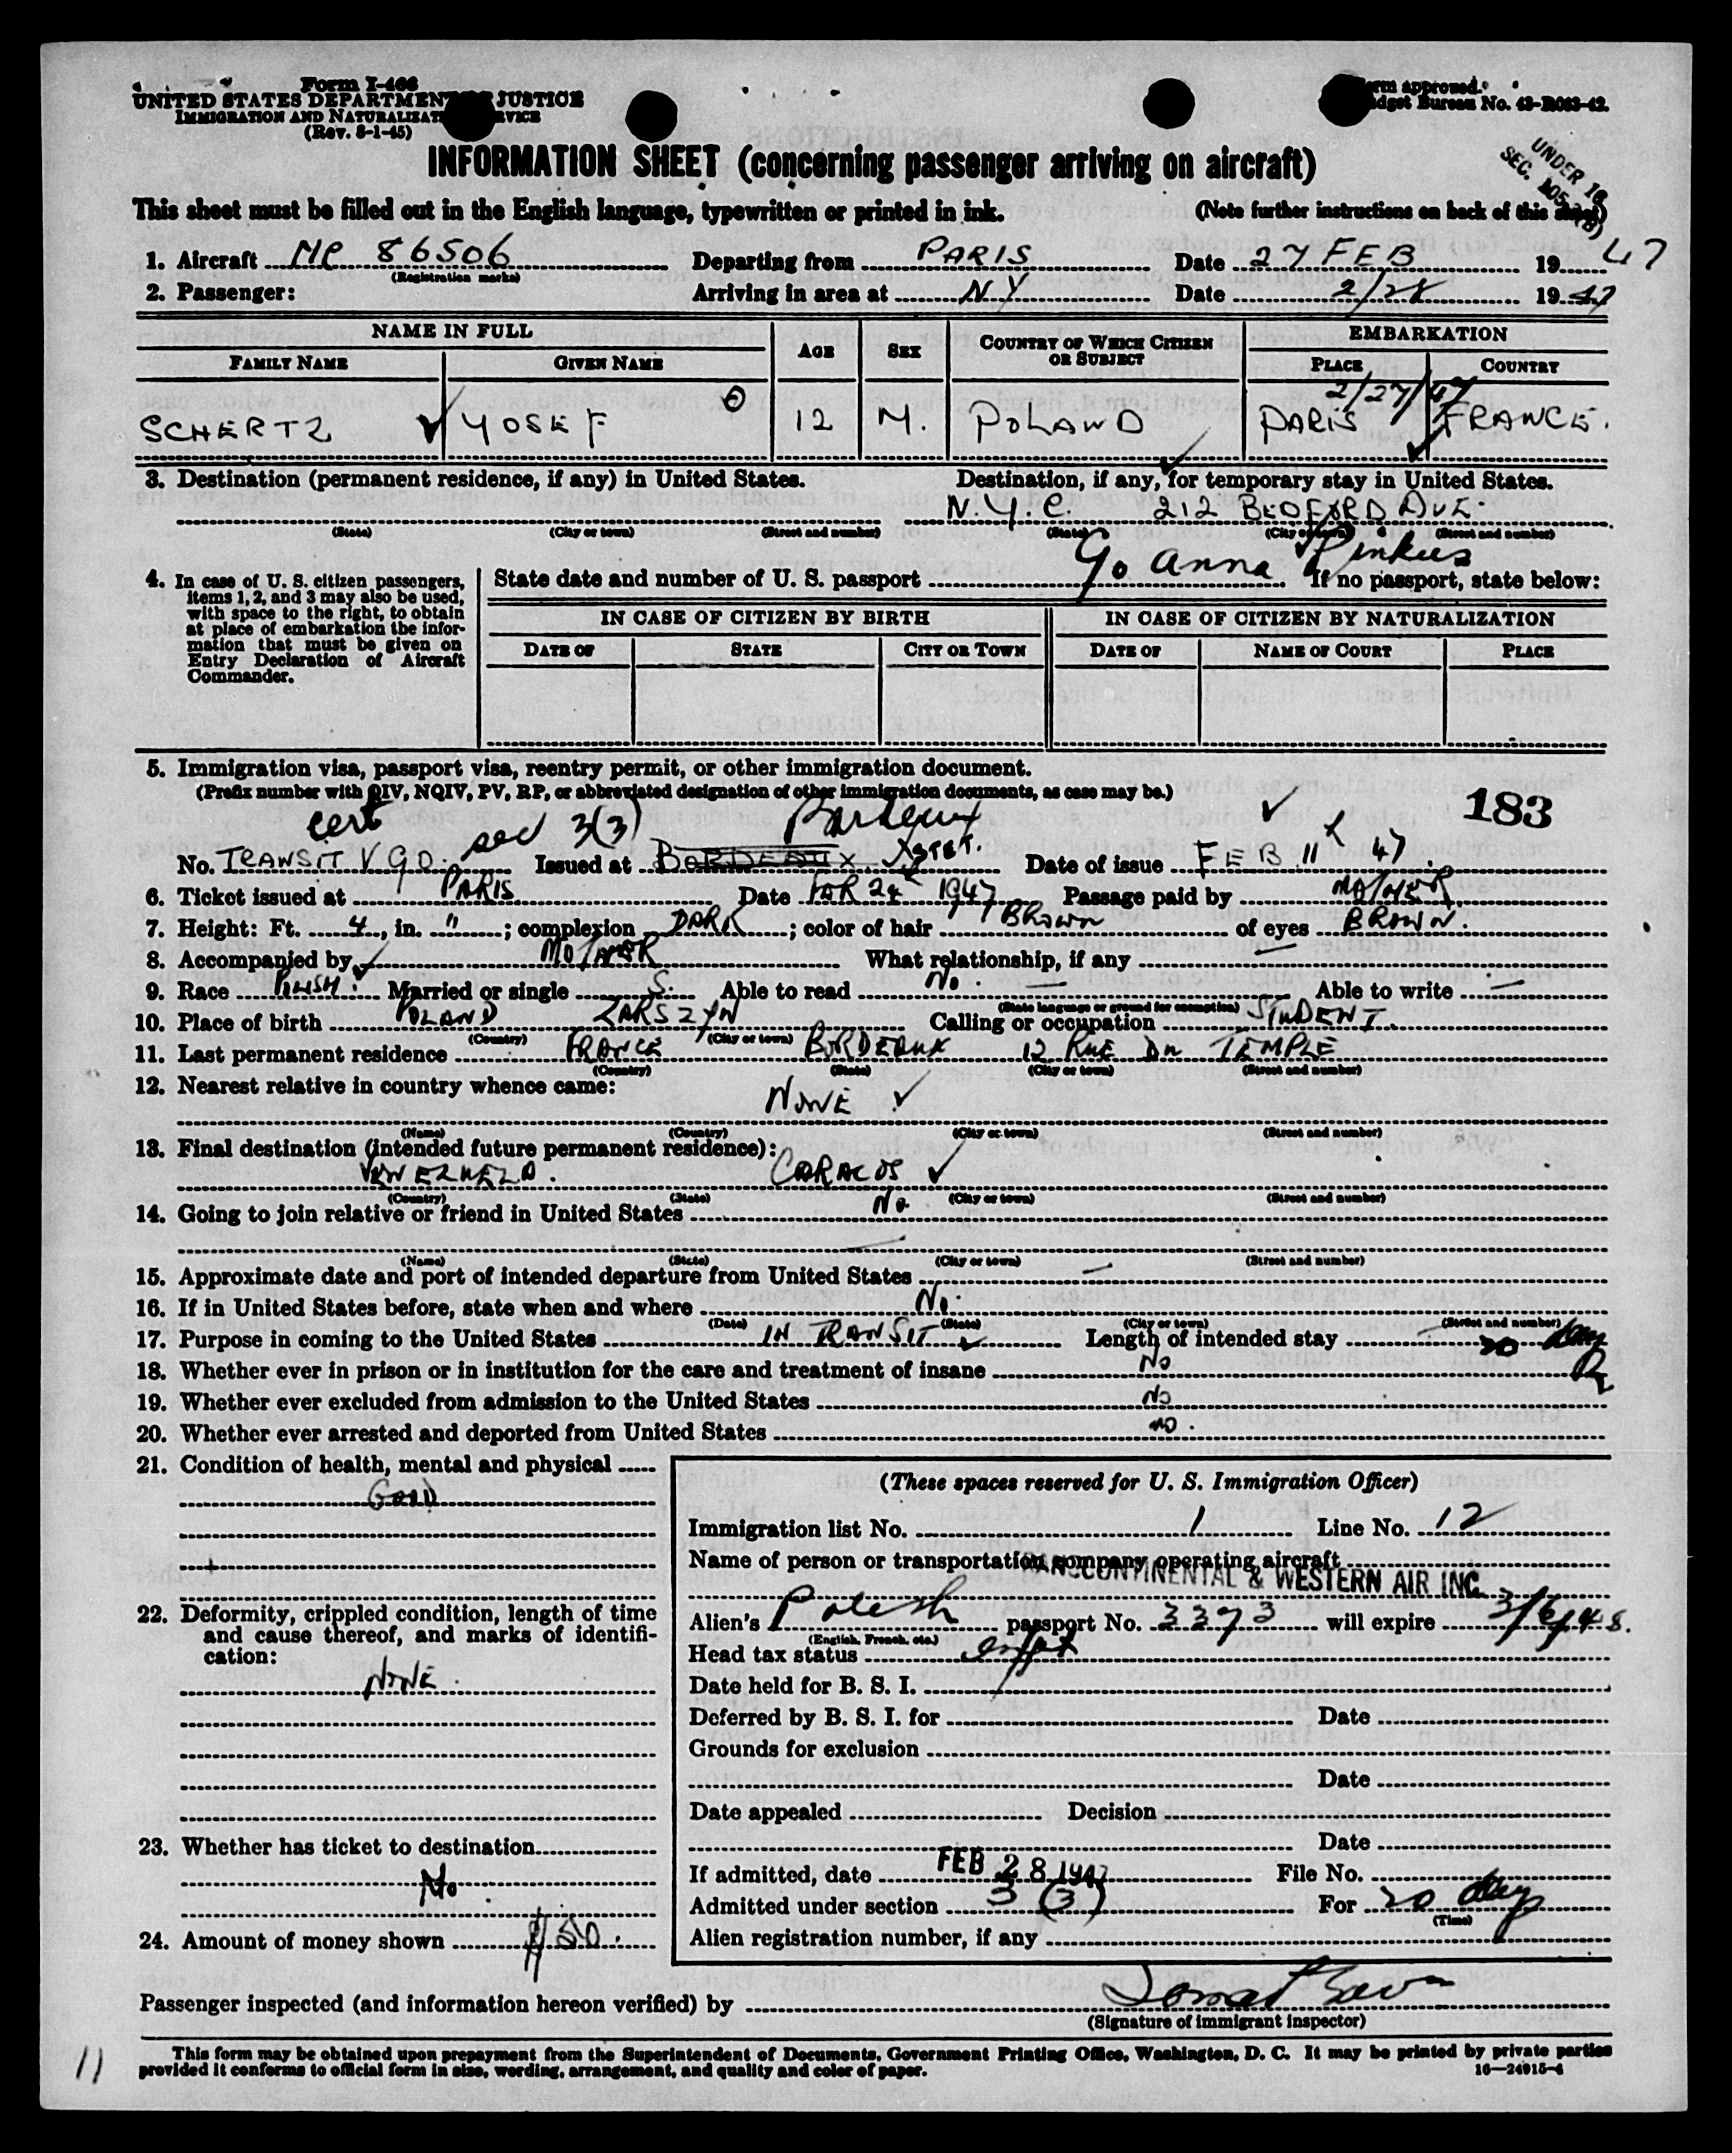 Form I-466
UNITED STATES DEPARTMENT JUSTICE
IMMIGRATION AND NATURALIZATION SERVICE
(Rev. 8-1-45)
Form approved.
Budget Bureau No. 43-R083-42.
UNDER 16
SEC.
INFORMATION SHEET (concerning passenger arriving on aircraft)
This sheet must be filled out in the English language, typewritten or printed in ink. (Note further instructions on back of this sheet)
1. Aircraft 86506 Departing from PARIS Date 27 FEB 1947
(Registration marks)
2. Passenger: Arriving in area at N Y Date 2/28 1947
NAME IN FULL AGE SEX COUNTRY OF WHICH CITIZEN OR SUBJECT EMBARKATION
FAMILY NAME GIVEN NAME PLACE COUNTRY
2/27/47
SCHERTZ YOSEF 12 M. POLAND PARIS FRANCE.
3. Destination (permanent residence, if any) in United States. Destination, if any, for temporary stay in United States.
N.Y.C. 212 BEDFORD AVE.
(State) (City or town) (Street and number) (State) (City or town) (Street and number)
c/o Anna Pinkus
4. In case of U. S. citizen passengers, items 1, 2, and 3 may also be used, with space to the right, to obtain at place of embarkation the information that must be given on Entry Declaration of Aircraft Commander.
State date and number of U. S. passport If no passport, state below:
IN CASE OF CITIZEN BY BIRTH IN CASE OF CITIZEN BY NATURALIZATION
DATE OF STATE CITY OR TOWN DATE OF NAME OF COURT PLACE
5. Immigration visa, passport visa, reentry permit, or other immigration document.
(Prefix number with QIV, NQIV, PV, RP, or abbreviated designation of other immigration documents, as case may be.)
183
cert sec 3(3) Bordeaux
No. TRANSIT Issued at BORDEAUX Date of issue FEB 11 47
6. Ticket issued at PARIS Date 24 1947 Passage paid by MOTHER
7. Height: Ft. 4, in. "; complexion DARK; color of hair BROWN of eyes BROWN.
8. Accompanied by MOTHER What relationship, if any —
9. Race Married or single S. Able to read No. — Able to write —
(State language or ground for exemption)
10. Place of birth POLAND ZARSZYN Calling or occupation STUDENT.
(Country) (City or town)
11. Last permanent residence FRANCE BORDEAUX 12 RUE DU TEMPLE
(Country) (State) (City or town) (Street and number)
12. Nearest relative in country whence came:
NONE
(Name) (Country) (City or town) (Street and number)
13. Final destination (intended future permanent residence):
VENEZUELA. CARACOS
(Country) (State) (City or town) (Street and number)
14. Going to join relative or friend in United States No
—
(Name) (State) (City or town) (Street and number)
15. Approximate date and port of intended departure from United States —
16. If in United States before, state when and where No.
(Date) (State) (City or town) (Street and number)
17. Purpose in coming to the United States IN TRANSIT Length of intended stay 20 days
18. Whether ever in prison or in institution for the care and treatment of insane No
19. Whether ever excluded from admission to the United States No
20. Whether ever arrested and deported from United States no.
21. Condition of health, mental and physical
GOOD
22. Deformity, crippled condition, length of time and cause thereof, and marks of identification:
NONE.
23. Whether has ticket to destination
No
24. Amount of money shown $50.
(These spaces reserved for U. S. Immigration Officer)
Immigration list No. 1 Line No. 12
Name of person or transportation company operating aircraft
TRANSCONTINENTAL & WESTERN AIR INC.
Alien's Polish passport No. 3373 will expire 3/6/48.
(English, French, etc.)
Head tax status
Date held for B. S. I.
Deferred by B. S. I. for Date
Grounds for exclusion
Date
Date appealed Decision
Date
If admitted, date FEB 28 1947 File No.
Admitted under section 3 (3) For 20 days
(Time)
Alien registration number, if any
Passenger inspected (and information hereon verified) by
(Signature of immigrant inspector)
This form may be obtained upon prepayment from the Superintendent of Documents, Government Printing Office, Washington, D. C. It may be printed by private parties
provided it conforms to official form in size, wording, arrangement, and quality and color of paper.
16—24915-4
11